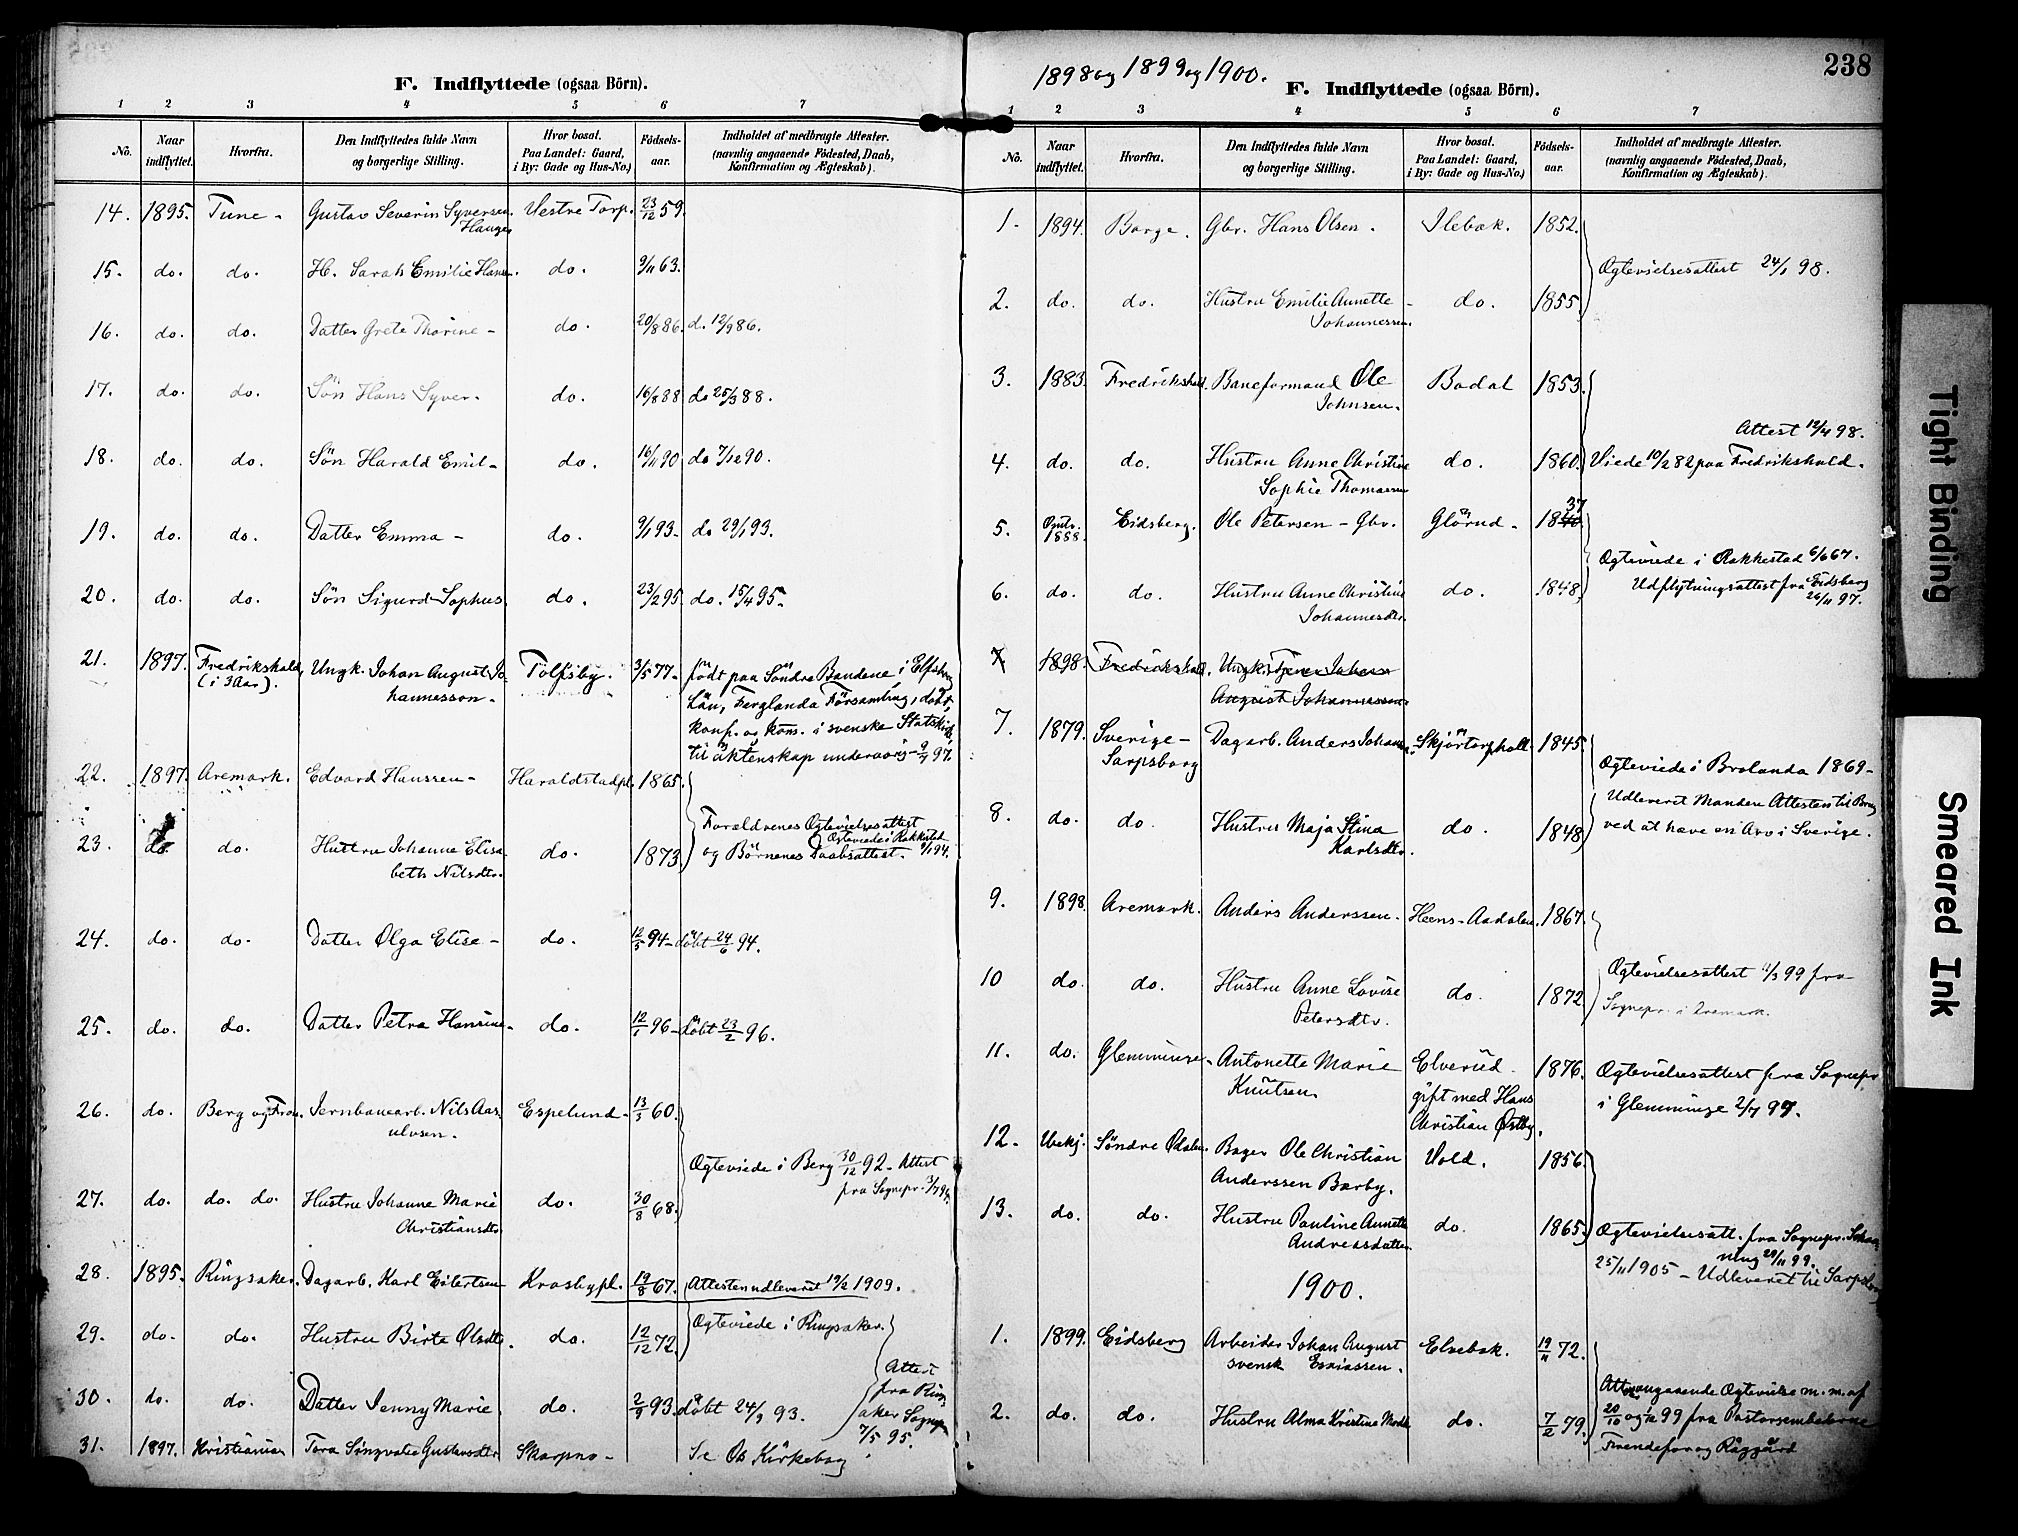 F. Indflyttede (ogsaa Börn).
1 2 3 4 5 6 7
No. Naar indflyttet. Hvorfra. Den Indflyttedes fulde Navn og borgerlige Stilling. Hvor bosat. Paa Landet: Gaard, i By: Gade og Hus-No.) Födsels-aar. Indholdet af medbragte Attester. (navnlig angaaende Födested, Daab, Konfirmation og Ægteskab).
14. 1895. Tune - Gustav Severin Syversen Vestre Torp. 23/12 59.
Hauger
15. do. do. H. Sarah Emilie Hansen. do. 9/11 63.
16. do. do. Datter Grete Thorine - do. 20/8 86. d. 12/9 86.
17. do. do. Sön Hans Syver. do. 16/8 88 do 25/3 88.
18. do. do. Sön Harald Emil - do. 16/11 90 do 7/12 90.
19. do. do. Datter Emma - do. 9/1 93 - do 29/1 93.
20. do. do. Sön Sigurd Sophus. do. 23/2 95 do. 15/4 95.
21. 1897. Fredrikshald, Ungk. Johan August Jo- Tolfsby. 3/5 77 - födt paa Söndre Bandene i Elfsborg
(i 3 Aar). hannesson - Län, Ferglanda Församling, döbt,
konf. og kons. i svenske Statskirke,
til äktenskap 97.
22. 1897. Aremark. Edvard Hanssen - Haraldstadpl. 1865.
Forældrenes Ogtevielsesattest
23. do do. Hustru Johanne Elisa- do. 1873 og Börnenes Daabsattest. Ogteviede i Rakkestad
beth Nilsdtr.
24. do. do. Datter Olga Elise - do. 12/5 94 - döbt 24/6 94.
25. do. do. Datter Petra Hansine - do. 12/1 96 - döbt 23/2 96.
26. do. Berg og Jernbanearb. Nils Aas- Espelund - 13/3 60.
ulvsen.
Ogteviede i Berg 30/12 92 - Attest
fra Sognepr.
27. do. do. do. Hustru Johanne Marie do. 30/8 68.
Christiansdtr.
28. 1895. Ringsaker. Dagarb. Karl Eilertsen Krosbypl. 19/8 67. Attesten udleveret 19/2 1909.
Ogteviede i Ringsaker.
29. do. do. Hustru Birte Olsdtr. do. 12/12 72.
Attest
fra Rings-
30. do. do. Datter Jenny Marie. do. 2/9 93 döbt 24/9 93. aker Sognepr.
7/5 95.
31. 1897. Kristiania Tora Gustavsdtr Skarpno - Se Kirkebog
1898 og 1899 og 1900.
238
F. Indflyttede (ogsaa Börn).
1 2 3 4 5 6 7
No. Naar indflyttet. Hvorfra. Den Indflyttedes fulde Navn og borgerlige Stilling. Hvor bosat. Paa Landet: Gaard, i By: Gade og Hus-No.) Födsels-aar. Indholdet af medbragte Attester. (navnlig angaaende Födested, Daab, Konfirmation og Ægteskab).
1. 1894. Borge. Gbr. Hans Olsen. Ilebak. 1852.
Ogtevielsesattest 24/1 98.
2. do. do. Hustru Emilie Annette - do. 1855
Johannessen.
3. 1883. Fredrikshald. Baneformand Ole Bodal 1853.
Johnsen.
Attest 12/4 98.
4. do. do. Hustru Anne Christine do. 1860. Viede 10/2 82 paa Fredrikshald.
Sophie Thomassen
5. Omtr. 1888. Eidsberg. Ole Petersen - Gbr. Glörud - 1840 37
Ogteviede i Rakkestad 6/6 67.
6. do. do. Hustru Anne Christine do. 1848 Udflytningsattest fra Eidsberg
Johannesdtr. 26/11 97.
7. 1898. Fredrikshald. Ungk. Tjener Johan
August Johannessen
7. 1879. Sverige - Dagarb. Anders Johans. Skjörtorphall. 1845
Sarpsborg
Ogteviede i Brolanda 1869 -
Udleveret Manden Attesten til Brug
8. do. do. Hustru Maja Stina do. 1848 ved at have en Arv i Sverige.
Karlsdtr.
9. 1898. Aremark. Anders Anderssen. Heens-Aadalen. 1867.
Ogtevielsesattest 11/3 99 fra
10 do. do. Hustru Anne Lovise do. 1872 Sognepr. i Aremark.
Petersdtr.
11. do. Glemminge. Antonette Marie Elverud 1876. Ogtevielsesattest fra Sognepr
Knutsen gift med Hans i Glemminge 2/7 97.
Christian Østby.
12. Ubekj. Söndre Odalen. Bager Ole Christian Vold. 1856.
Anderssen Barby.
13. do. do. Hustru Pauline Annette do. 1865. Ogtevielsesatt. fra Sognepr.
Andreasdatter. 29/11 99.
25/11 1905 - Udleveret til Sarpsborg
1900.
1. 1899. Eidsberg Arbeider Johan August Elvebak. 19/11 72.
svensk Esaiassen.
Att. angaaende Ogtevielse m.m. af
2. do. do. Hustru Alma Kristina do. 7/2 79. 20/10 og 99 fra Pastorsembeterne
Frendefor og Råggärd
Tight Binding
Smeared Ink